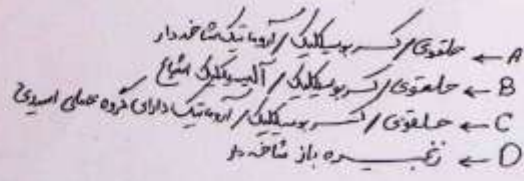 A ← حلقوی / کربوسیکلیک / آروماتیک شاخه دار
B ← حلقوی / کربوسیکلیک / آلیسیکلیک اشباع
C ← حلقوی / کربوسیکلیک / آروماتیک دارای گروه عاملی اسیدی
D ← زنجیره باز شاخه دار